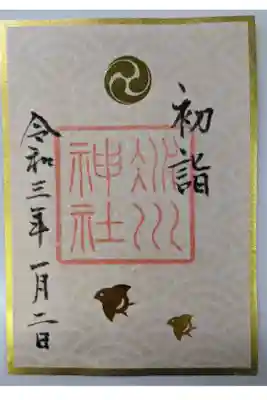 初詣
氷川
神社
令和三年 一月二日